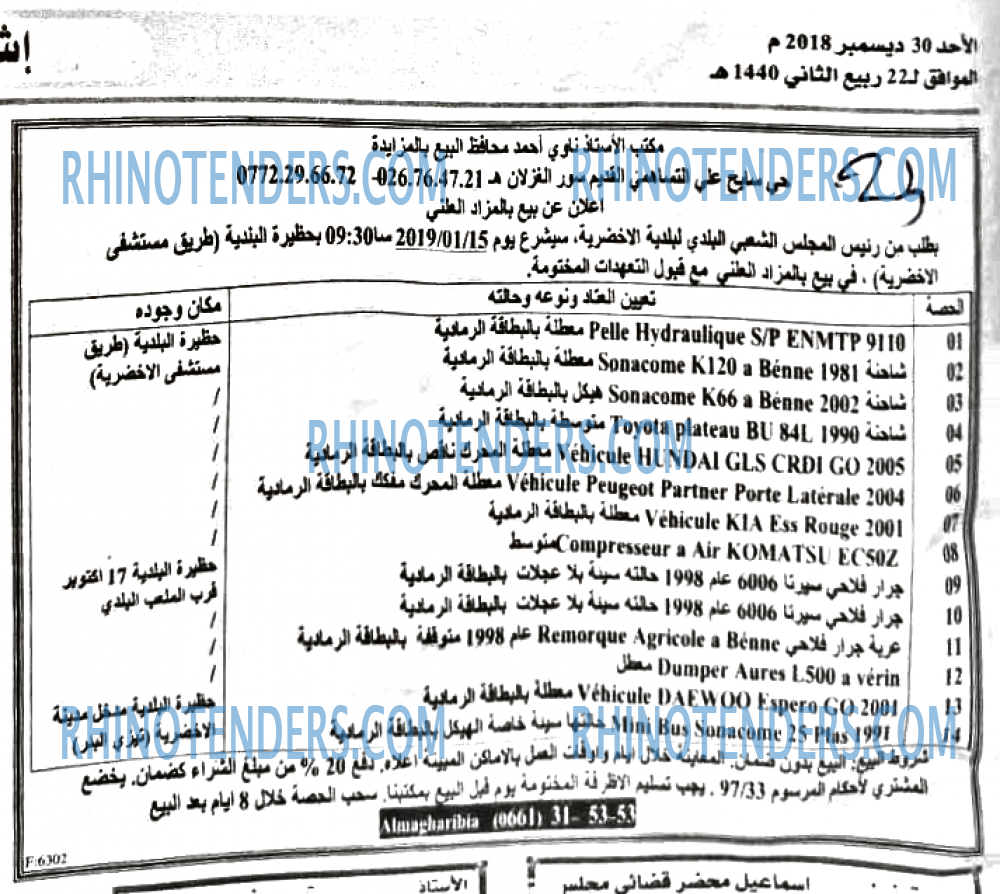 الأحد 30 ديسمبر 2018 م
الموافق لـ22 ربيع الثاني 1440 هـ
مكتب الأستاذ ناوي أحمد محافظ البيع بالمزايدة
حي سايح علي التساهمي القديم سور الغزلان هـ 026.76.47.21- 0772.29.66.72
اعلان عن بيع بالمزاد العلني
بطلب من رئيس المجلس الشعبي البلدي لبلدية الاخضرية، سيشرع يوم 2019/01/15 سا09:30 بحظيرة البلدية (طريق مستشفى
الاخضرية) ، في بيع بالمزاد العلني مع قبول التعهدات المختومة.
الحصة تعيين العتاد ونوعه وحالته مكان وجوده
01 Pelle Hydraulique S/P ENMTP 9110 معطلة بالبطاقة الرمادية حظيرة البلدية (طريق
02 شاحنة Sonacome K120 a Bénne 1981 معطلة بالبطاقة الرمادية مستشفى الاخضرية)
03 شاحنة Sonacome K66 a Bénne 2002 هيكل بالبطاقة الرمادية /
04 شاحنة Toyota plateau BU 84L 1990 متوسطة بالبطاقة الرمادية /
05 Véhicule HUNDAI GLS CRDI GO 2005 معطلة المحرك ناقص بالبطاقة الرمادية /
06 Véhicule Peugeot Partner Porte Latérale 2004 معطلة المحرك مفكك بالبطاقة الرمادية /
07 Véhicule KIA Ess Rouge 2001 معطلة بالبطاقة الرمادية /
08 Compresseur a Air KOMATSU EC50Z متوسط /
09 جرار فلاحي سيرتا 6006 عام 1998 حالته سيئة بلا عجلات بالبطاقة الرمادية حظيرة البلدية 17 اكتوبر
10 جرار فلاحي سيرتا 6006 عام 1998 حالته سيئة بلا عجلات بالبطاقة الرمادية قرب الملعب البلدي
11 عربة جرار فلاحي Remorque Agricole a Bénne عام 1998 متوقفة بالبطاقة الرمادية /
12 Dumper Aures L500 a vérin معطل /
13 Véhicule DAEWOO Espero GO 2001 معطلة بالبطاقة الرمادية حظيرة البلدية مدخل مدينة
14 Mini Bus Sonacome 25 Plus 1991 حالتها سيئة خاصة الهيكل بالبطاقة الرمادية الاخضرية
شروط البيع: البيع بدون ضمان. المعاينة خلال أيام وأوقات العمل بالاماكن المبينة اعلاه. دفع 20 % من مبلغ الشراء كضمان. يخضع
المشتري لأحكام المرسوم 97/33 . يجب تسليم الاظرفة المختومة يوم قبل البيع بمكتبنا. سحب الحصة خلال 8 ايام بعد البيع
Almagharibia (0661) 31- 53-53
F:6302
الأستاذ
اسماعيل محضر قضائي مجلس
RHINOTENDERS.COM
RHINOTENDERS.COM
RHINOTENDERS.COM
RHINOTENDERS.COM
RHINOTENDERS.COM